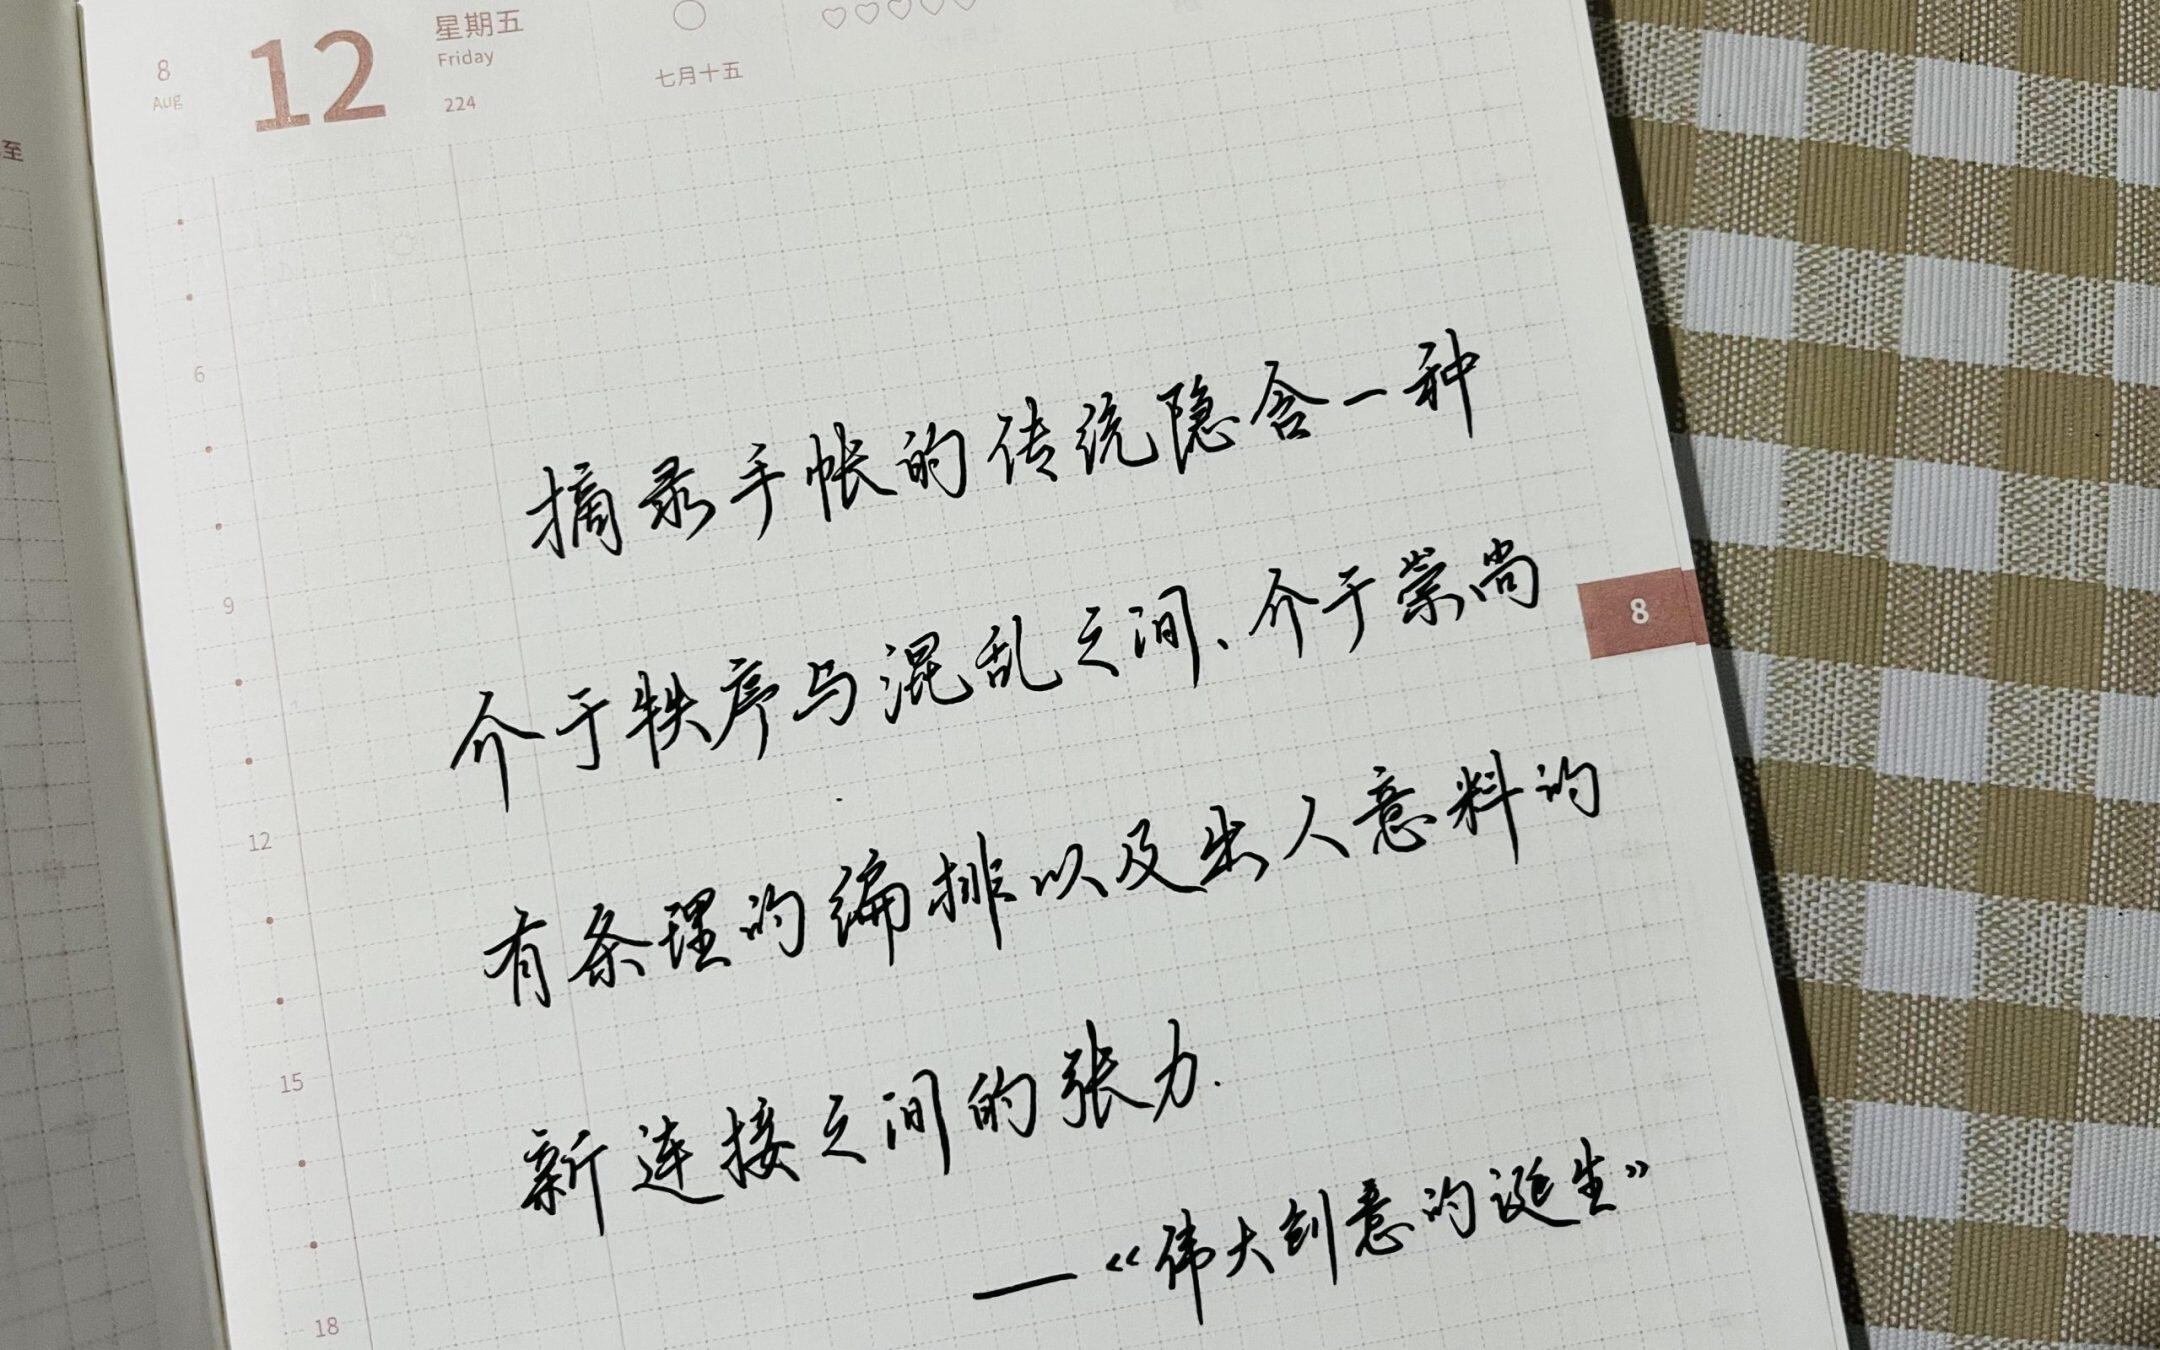 8
Aug
12
星期五
Friday
224
七月十五
至
6
9
12
15
18
8
摘录手帐的传统隐含一种
介于秩序与混乱之间、介于崇尚
有条理的编排以及出人意料的
新连接之间的张力.
——《伟大创意的诞生》